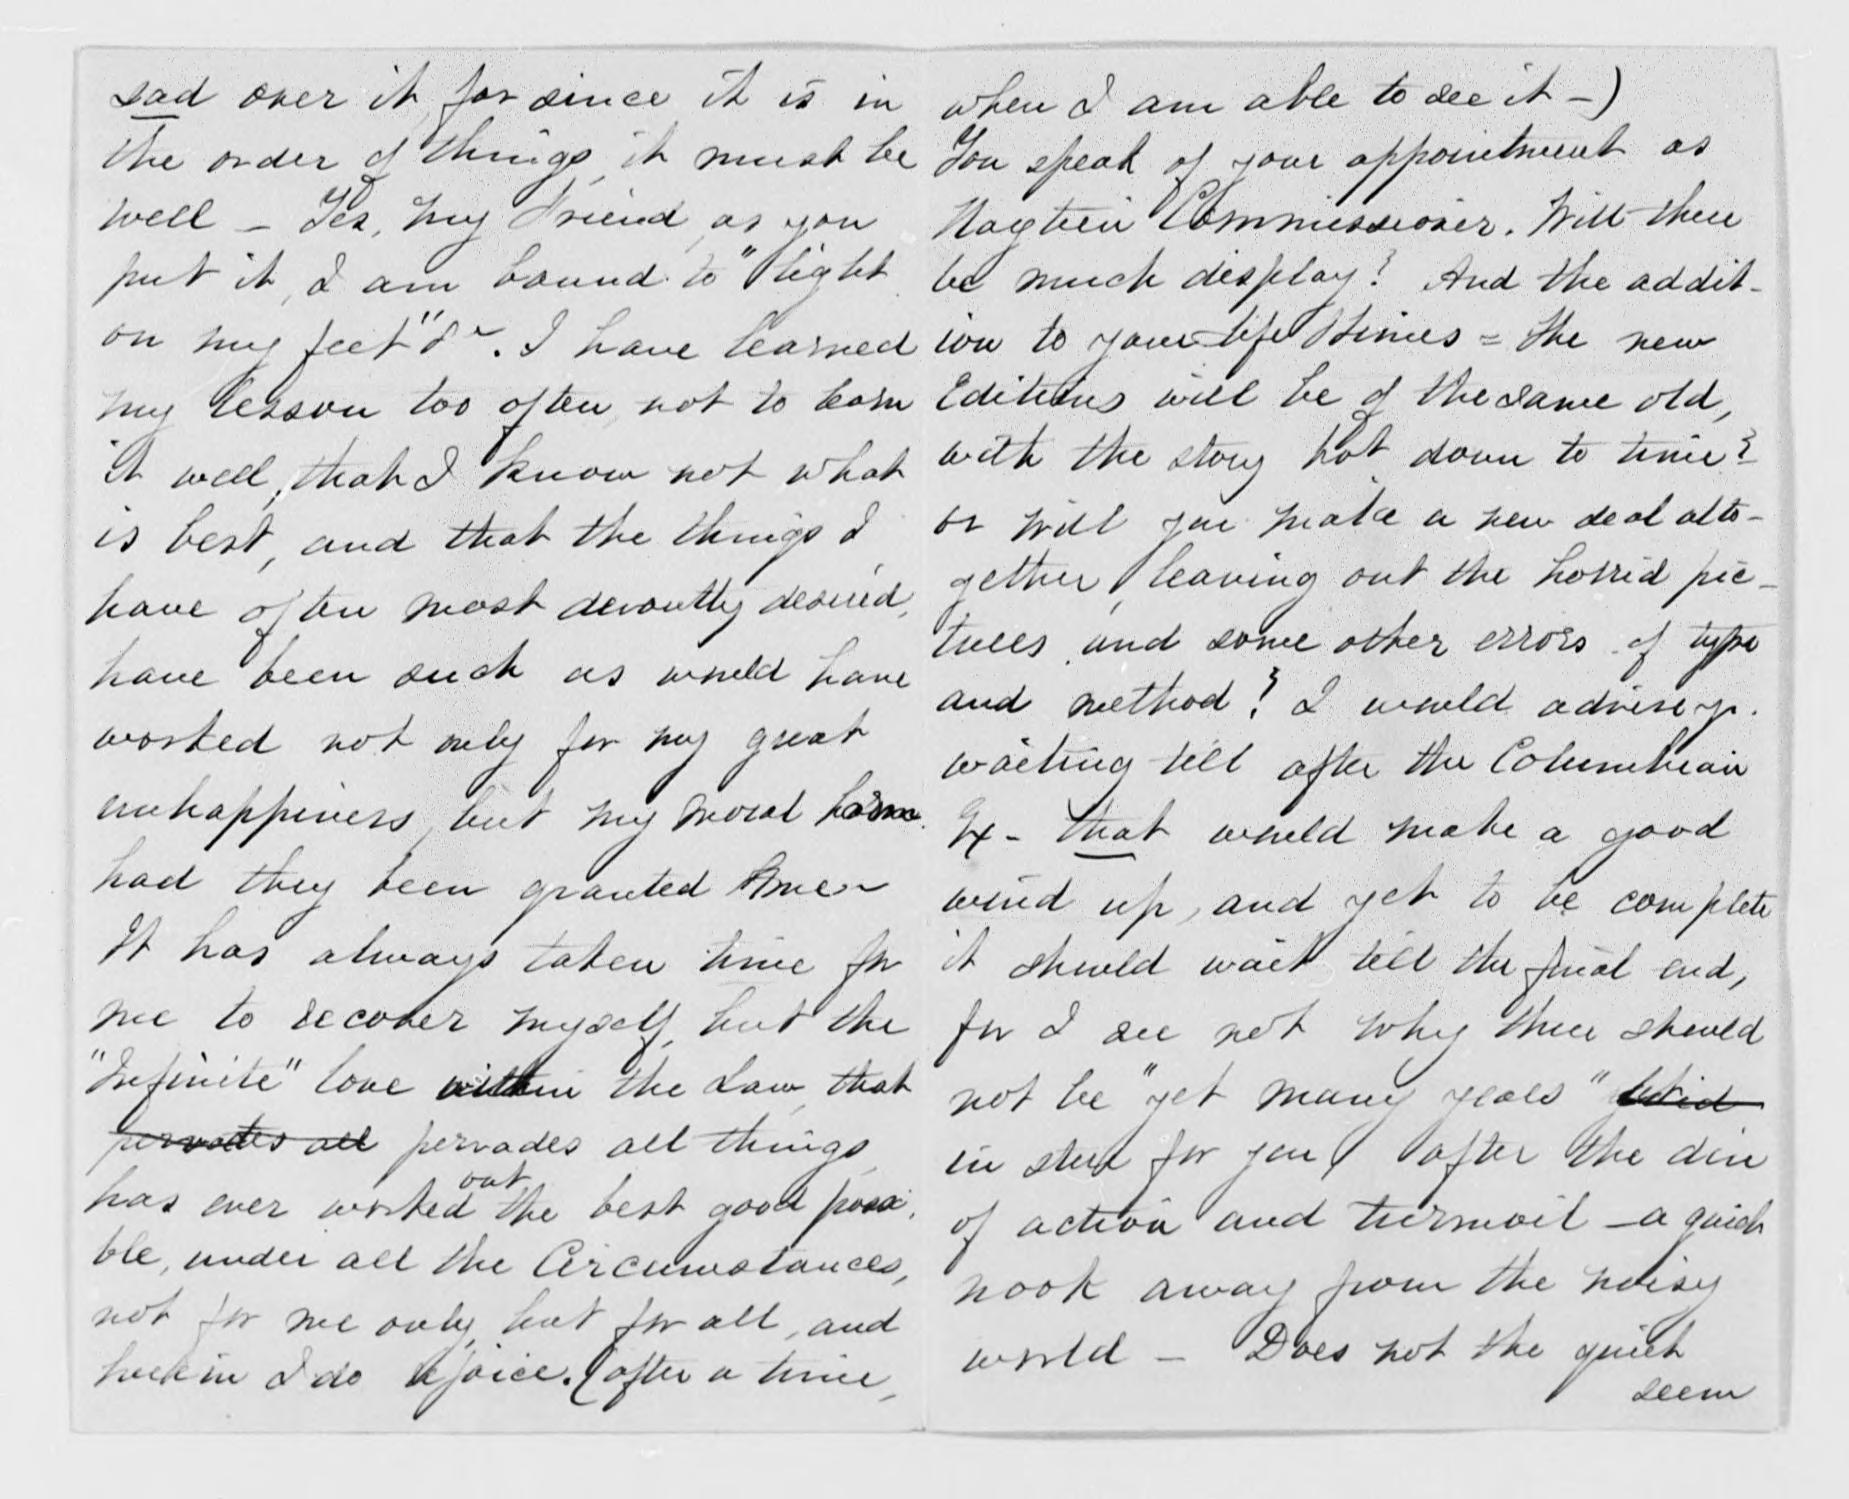 sad over it, for since it is in
the order of things, it must be
well – Yes, my Friend, as you
put it, I am bound to "light
on my feet" &c. I have learned
my lesson too often, not to learn
it well, that I know not what
is best, and that the things I
have often most devoutly desired,
have been such as would have
worked not only for my great
unhappiness, but my moral harm
had they been granted me –
It has always taken time for
me to recover myself, but the
"Infinite" love within the Law, that
pervades all pervades all things,
has ever worked out the best good possi-
ble, under all the Circumstances,
not for me only, but for all, and
herein I do rejoice. (after a time,
when I am able to see it –)
You speak of your appointment as
Haytien Commissioner. Will there
be much display? And the addit-
ion to your Life & Times = the new
Editions will be of the same old,
with the story bot down to time?
or will you make a new deal alto-
gether, leaving out the horrid pic-
tures and some other errors of type
and method? I would advise yr.
waiting till after the Columbian
Ex – that would make a good
wind up, and yet to be complete
it should wait till the final end,
for I see not why there should
not be "yet many years"
in store for you, after the din
of action and turmoil – a quiet
nook away from the noisy
world – Does not the quiet
seem